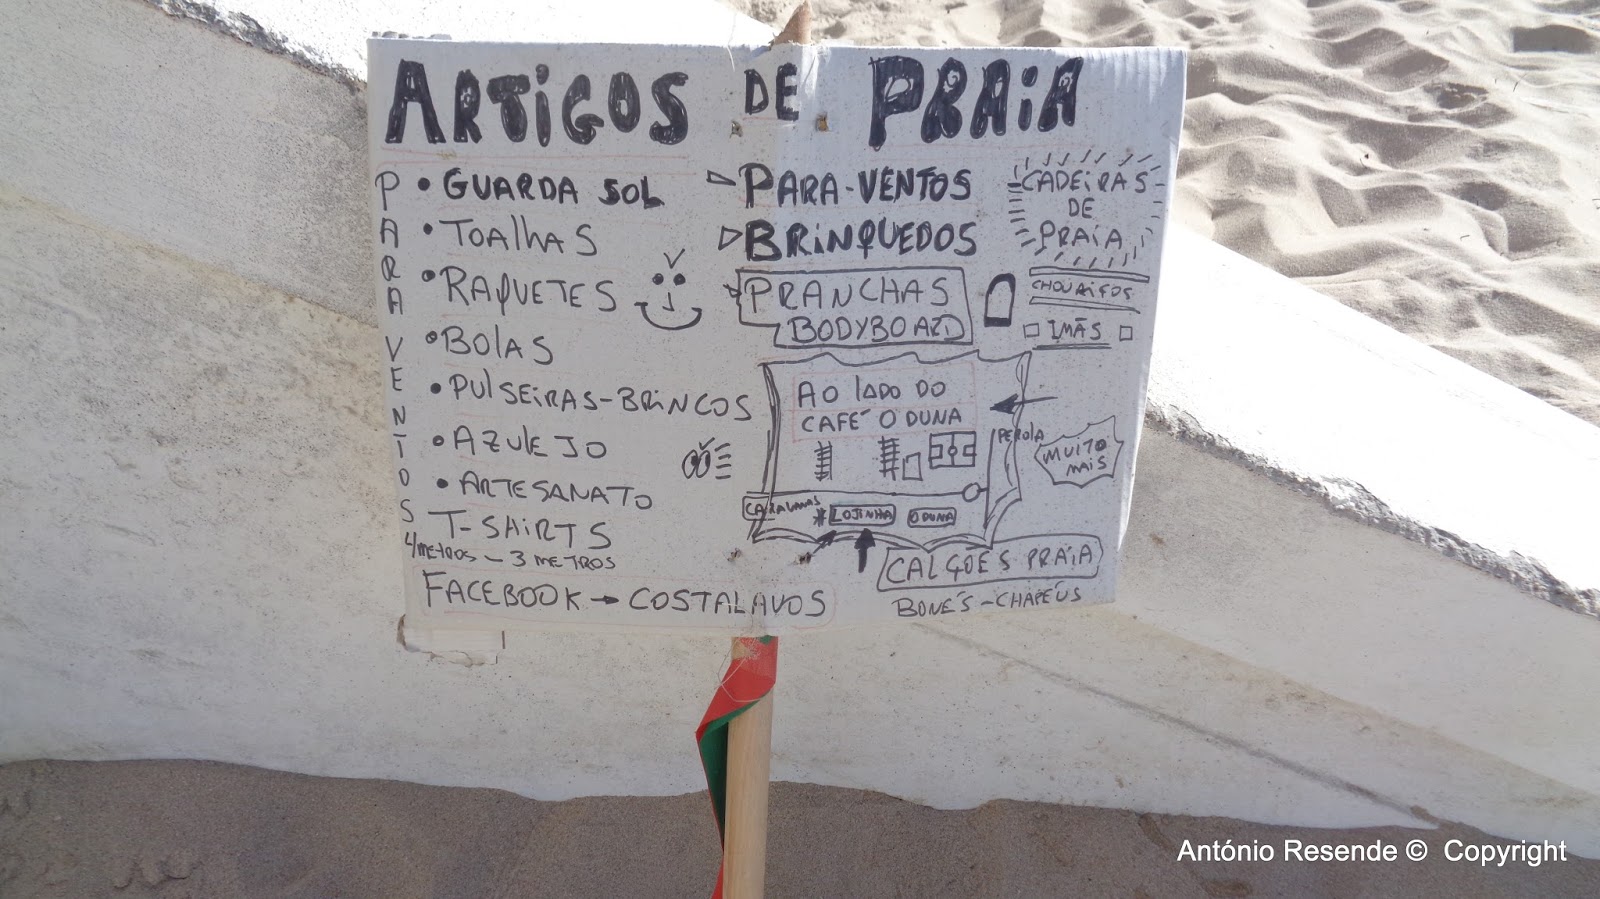 ARTIGOS DE PRAIA
PARA VENTOS
• GUARDA SOL
• TOALHAS
• RAQUETES
• BOLAS
• PULSEIRAS-BRINCOS
• AZULEJO
• ARTESANATO
T-SHIRTS
4/METROS - 3 METROS
FACEBOOK → COSTALAVOS
PARA-VENTOS
BRINQUEDOS
PRANCHAS
BODYBOARD
CADEIRAS
DE
PRAIA
IMÃS
AO LADO DO
CAFÉ O DUNA
PEROLA
MUITO
MAIS
*LOJINHA
O DUNA
CALÇÕES PRAIA
BONÉS - CHAPÉUS
António Resende © Copyright